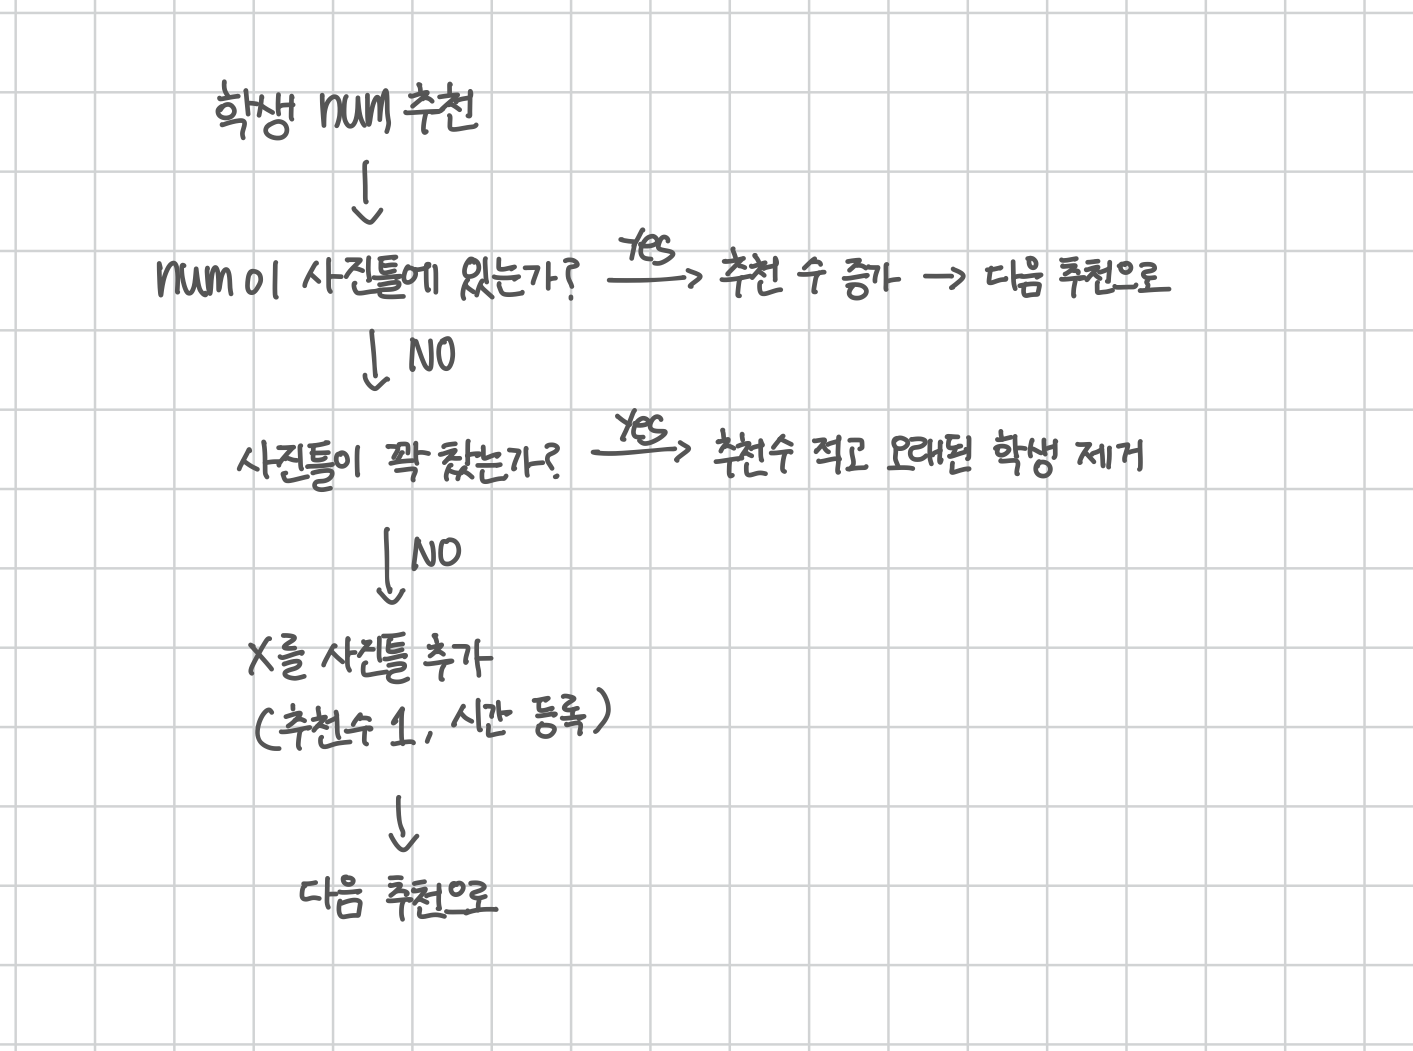 학생 num 추천
↓
num이 사진틀에 있는가? Yes → 추천 수 증가 → 다음 추천으로
↓ NO
사진틀이 꽉 찼는가? Yes → 추천수 적고 오래된 학생 제거
↓ NO
X를 사진틀 추가
(추천수 1, 시간 등록)
↓
다음 추천으로